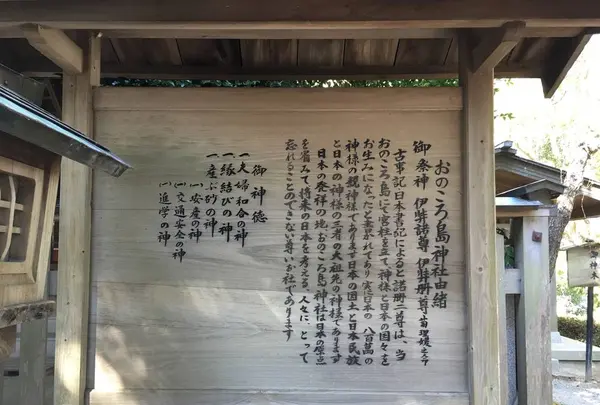 おのころ島神社由緒
御祭神 伊弉諾尊 伊弉冊尊 菊理媛之命
古事記日本書紀によると諾冊二尊は、当
おのころ島にて宮柱を立て神様と日本の国々を
お生みになったと書かれてあり実に日本の八百万の
神様の親神様であります日本の国土と日本民族
と日本の神様の三者の大祖先の神様であります
日本の発祥の地、おのころ島神社は日本の原点
を省みて将来の日本を考える人々にとって
忘れることのできない尊いお社であります
御神徳
一夫婦和合の神
一縁結びの神
一産ぶ砂の神
一安産の神
一交通安全の神
一進学の神